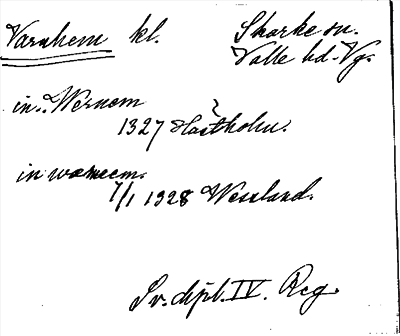 Varnhem kl. Skarke sn.
Valle hd. Vg.
in. Wernem
1327 Hästholm.
in warneem.
7/1 1328 Wessland.
Sv. dipl. IV. Reg.